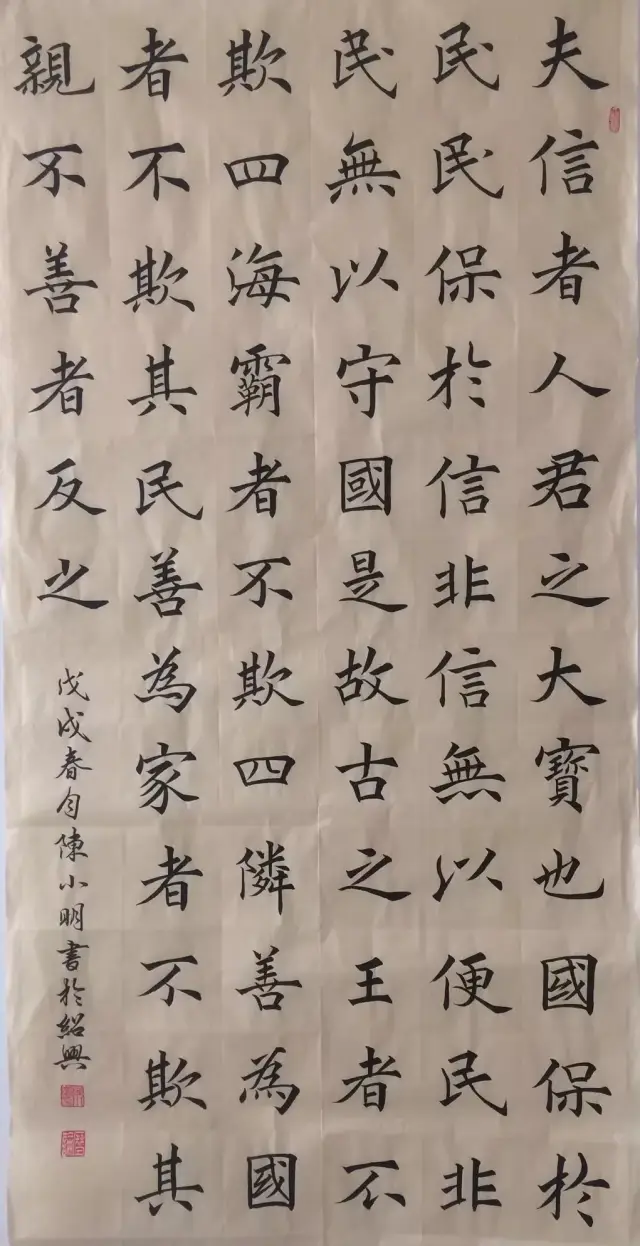 夫信者人君之大寶也國保於
民民保於信非信無以便民非
民無以守國是故古之王者不
欺四海霸者不欺四隣善為國
者不欺其民善為家者不欺其
親不善者反之
戊戌春月陳小明書於紹興